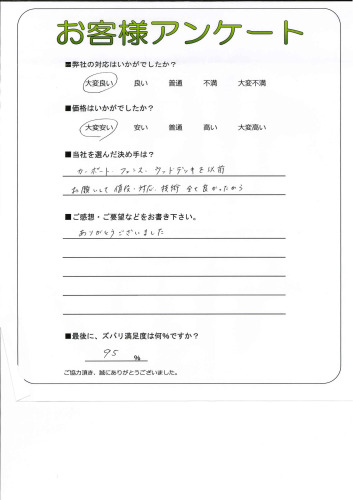 お客様アンケート
■弊社の対応はいかがでしたか？
大変良い 良い 普通 不満 大変不満
■価格はいかがでしたか？
大変安い 安い 普通 高い 大変高い
■当社を選んだ決め手は？
カーポート・フェンス・ウッドデッキを以前
お願いして 値段・対応・技術 全て良かったから
■ご感想・ご要望などをお書き下さい。
ありがとうございました
■最後に、ズバリ満足度は何%ですか？
95 %
ご協力頂き、誠にありがとうございました。